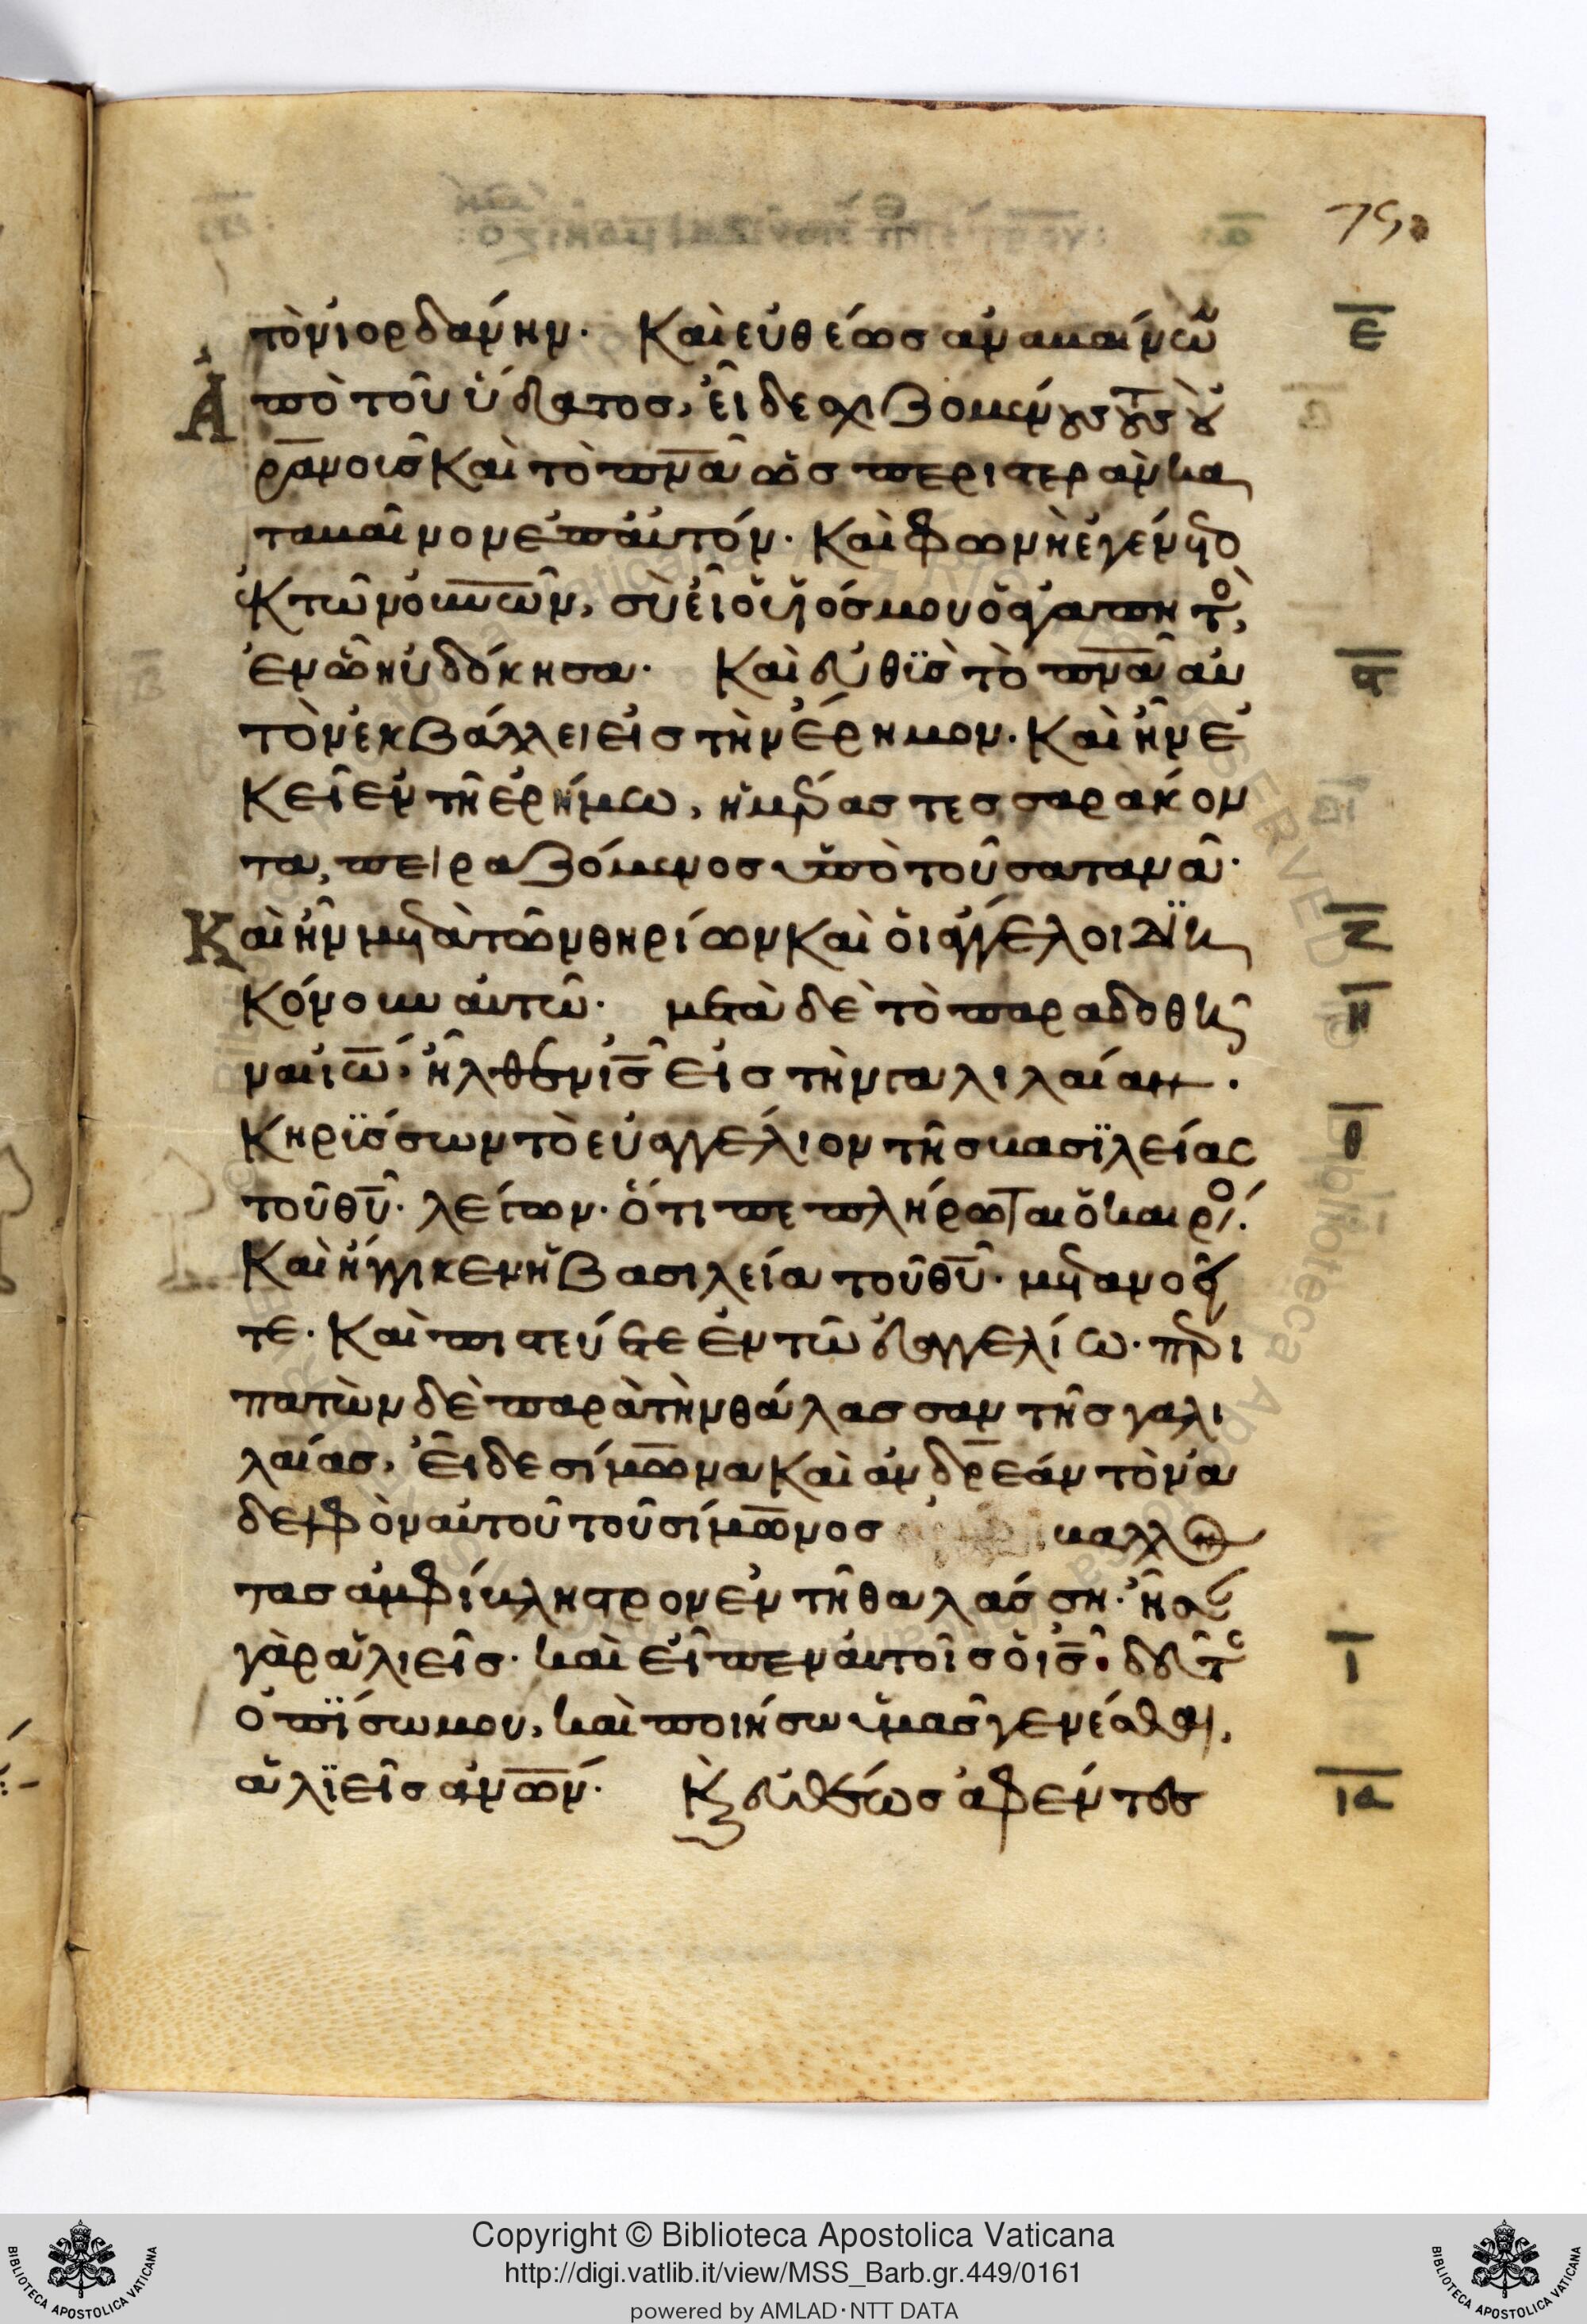 79
τὸν ἰορδάνην. Καὶ εὐθέως ἀναβαίνων
ε
Ἀπὸ τοῦ ὕδατος, εἶδε σχιζομένους τοὺς οὐ
ρανοὺς Καὶ τὸ πνᾶ ὡς περιστερὰν κα
ταβαῖνον ἐπ αὐτόν. Καὶ φωνὴ ἐγένετο
ἐκ τῶν οὐνῶν, σὺ εἶ ὁ υἱός μου ὁ ἀγαπητὸς,
ἐν ὧ ηὐδόκησα. Καὶ εὐθὺς τὸ πνᾶ αυ
τὸν ἐκβάλλει εἰς τὴν ἔρημον. Καὶ ἦν ἐ
Κεῖ ἐν τῆ ἐρήμω, ἡμέρας τεσσαρακον
τα, πειραζόμενος ὑπὸ τοῦ σατανᾶ.
ζ
Καὶ ἦν μετὰ τῶν θηρίων Καὶ οἱ ἄγγελοι διη
Κόνουν αὐτῶ. μετὰ δὲ τὸ παραδοθῆ
η
ναι ιω, ἦλθεν ις εἰς τὴν γαλιλαίαν.
Κηρύσσων τὸ εὐαγγέλιον τῆς βασϊλείας
θ
τοῦ θυ. λέγων. ὅτι πεπλήρωται ὁ καιρός.
Καὶ ἤγγικεν ἡ βασιλεία τοῦ θυ. μετανοεῖ
τε. Καὶ πιστεύετε ἐν τῶ εὐαγγελίω. περι
πατὼν δὲ παρὰ τὴν θάλασσαν τῆς γαλι
λαίας, εἶδε σίμωνα Καὶ ἀνδρέαν τὸν ἀ
δελφὸν αὐτοῦ τοῦ σίμωνος βαλλον
τας ἀμφίβληστρον ἐν τῆ θαλάσση. ἦσαν
γὰρ ἁλιεῖς. καὶ εἶπεν αὐτοῖς ὁ ις. δεῦτε
ι
ὀπίσω μου, καὶ ποιήσω ὑμᾶς γενέσθαι,
ἁλϊεῖς ἀνων. Καὶ εὐθέως ἀφέντες
ια
Copyright © Biblioteca Apostolica Vaticana
http://digi.vatlib.it/view/MSS_Barb.gr.449/0161
powered by AMLAD·NTT DATA
BIBLIOTECA APOSTOLICA VATICANA
BIBLIOTECA APOSTOLICA VATICANA